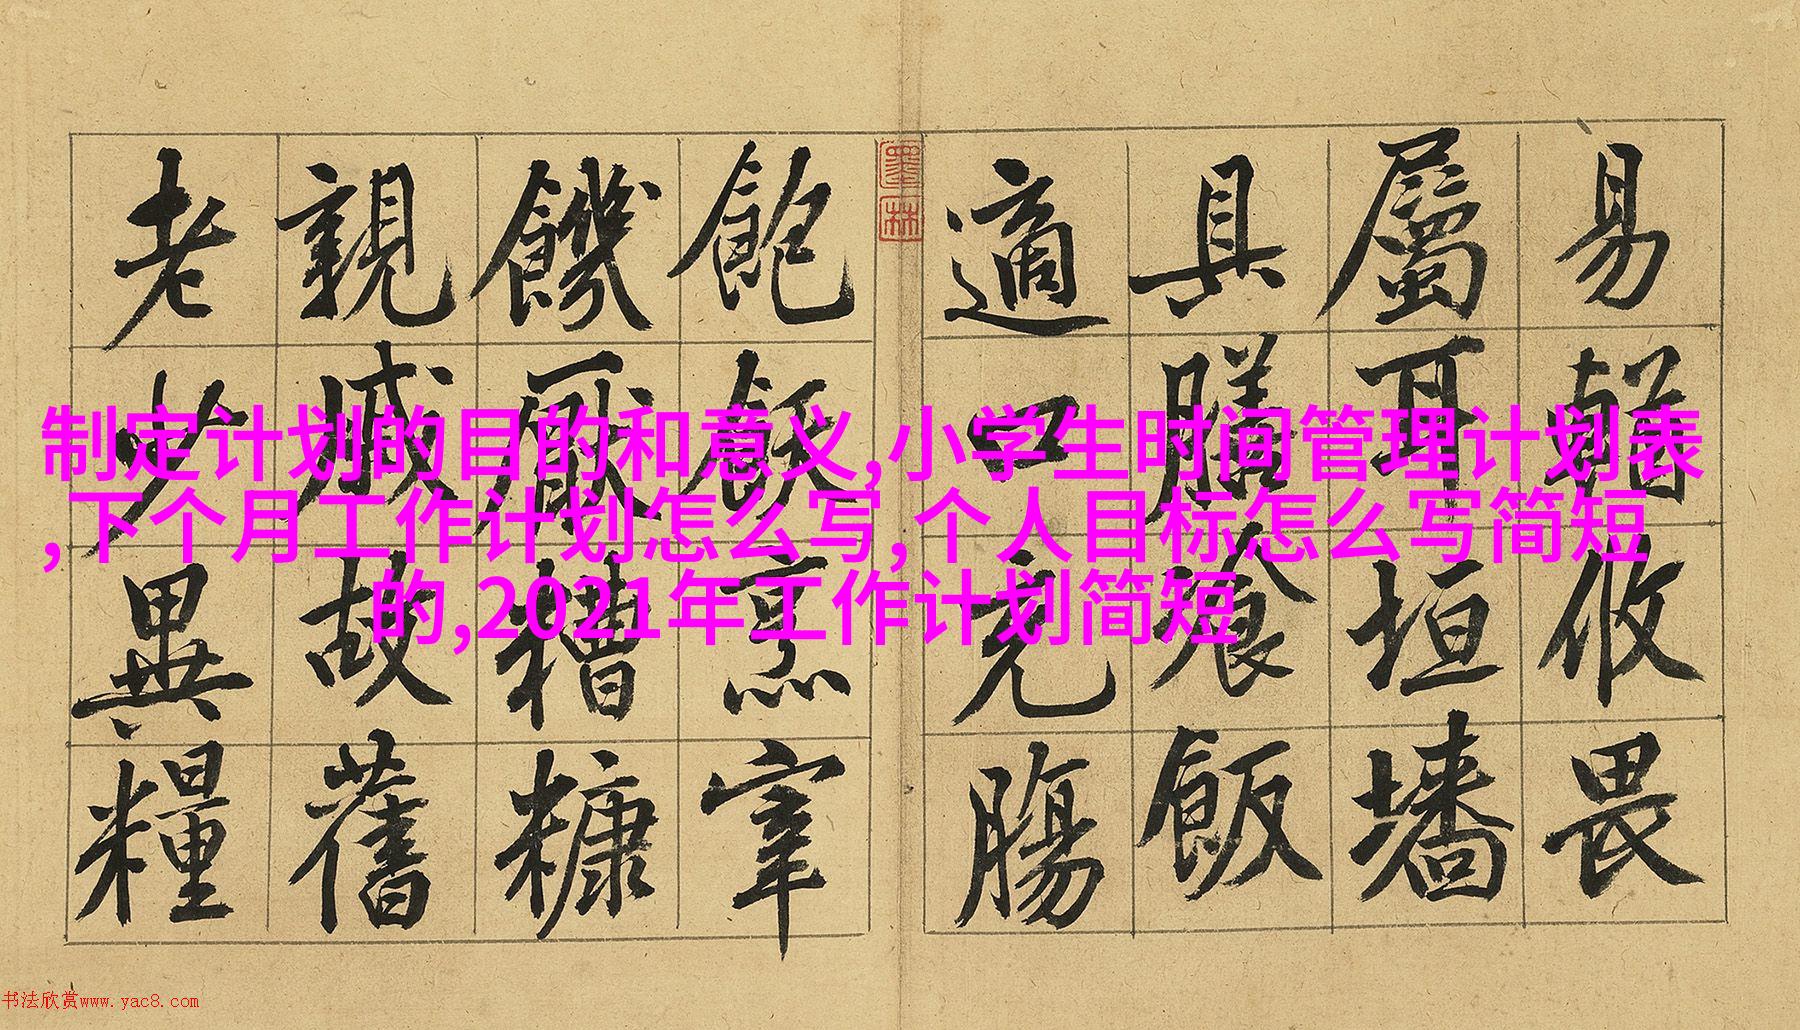 易輶攸畏
屬耳垣墻
具膳飡飯
適口充腸
墨林
飽飫烹宰
饑厭糟糠
親戚故舊
老少異糧
制定计划的目的和意义,小学生时间管理计划表
,下个月工作计划怎么写,个人目标怎么写简短
的,2021年工作计划简短
书法欣赏www.yac8.com